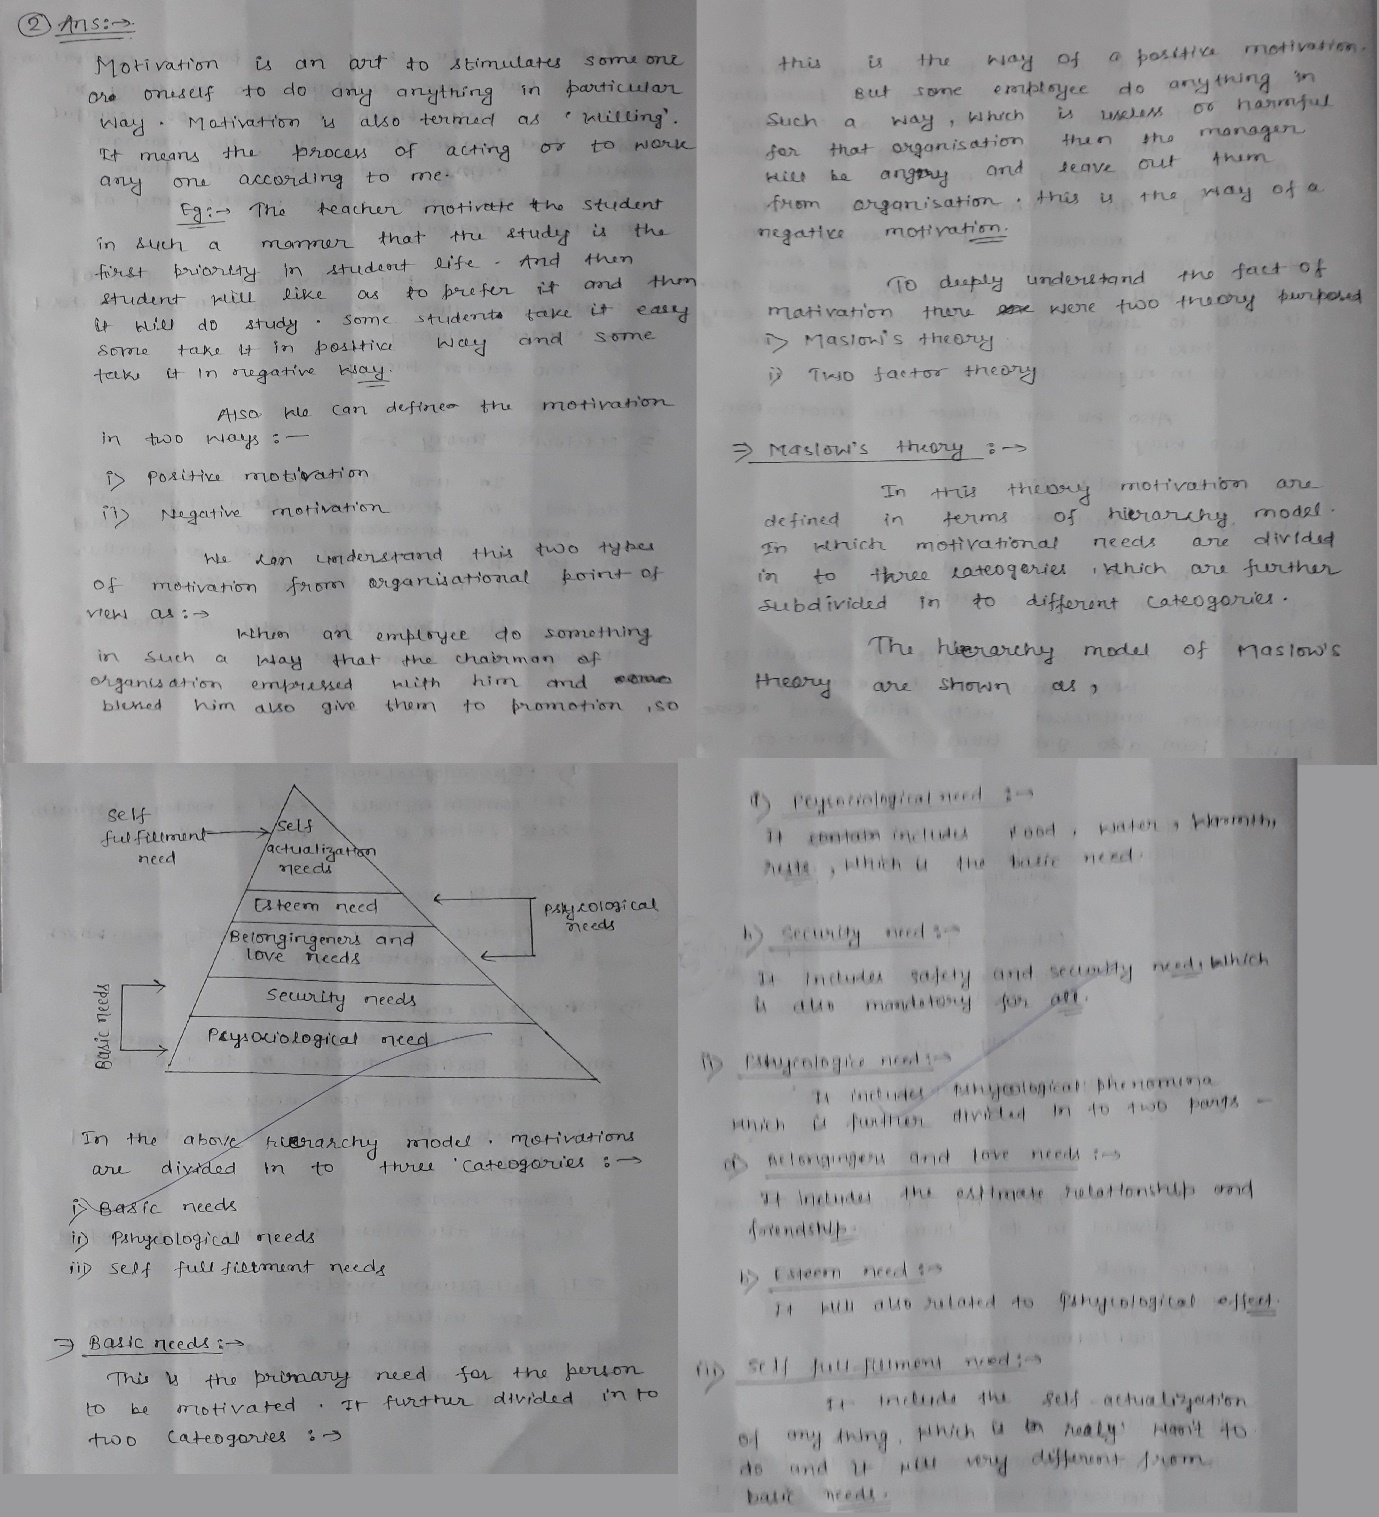 ② Ans:→
Motivation is an art to stimulates some one
ore oneself to do any anything in particular
way. Motivation is also termed as 'willing'.
It means the process of acting or to work
any one according to me.
Eg:→ The teacher motivate the student
in such a manner that the study is the
first priority in student life. And then
student will like as to prefer it and then
it will do study. Some students take it easy
some take it in positive way and some
take it in negative way.
Also we can define the motivation
in two ways :—
i) Positive motivation
ii) Negative motivation
We can understand this two types
of motivation from organisational point of
view as :→
When an employee do something
in such a way that the chairman of
organisation empressed with him and
blessed him also give them to promotion, so
this is the way of a positive motivation.
But some employee do anything in
such a way, which is useless or harmful
for that organisation then the manager
will be angry and leave out them
from organisation. this is the way of a
negative motivation.
To deeply understand the fact of
motivation there were two theory purposed
i) Maslow's theory
ii) Two factor theory
⇒ Maslow's theory :→
In this theory motivation are
defined in terms of hierarchy model.
In which motivational needs are divided
in to three cateogeries, which are further
subdivided in to different cateogories.
The hierarchy model of Maslow's
theory are shown as,
self
fulfillment
need
self
actualization
needs
Esteem need
Belongingeners and
love needs
Security needs
Psysociological need
Psycological
needs
Basic needs
In the above hierarchy model. motivations
are divided in to three 'cateogories :→
i) Basic needs
ii) Pshycological needs
iii) self full fillment needs
⇒ Basic needs :→
This is the primary need for the person
to be motivated. It further divided in to
two cateogories :→
a) Psysociological need :→
It contain includes food, water, warmth,
rests, which is the basic need.
b) Security need :→
It includes safety and security needs which
is also mandatory for all.
ii) Pshycologice need :→
It includes pshycological phenomena
which is further divided in to two parts –
a) Belongingers and love needs :→
It includes the estimate relationship and
friendship.
b) Esteem need :→
It will also related to pshycological effect.
iii) self full fillment need :→
It include the self actualization
of any thing, which is in realy want to
do and it will very different from
basic needs.